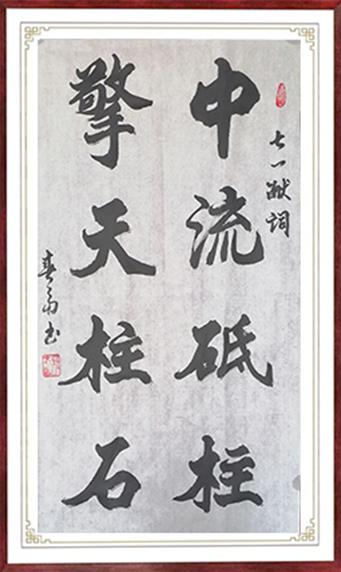 七一献词
中流砥柱
擎天柱石